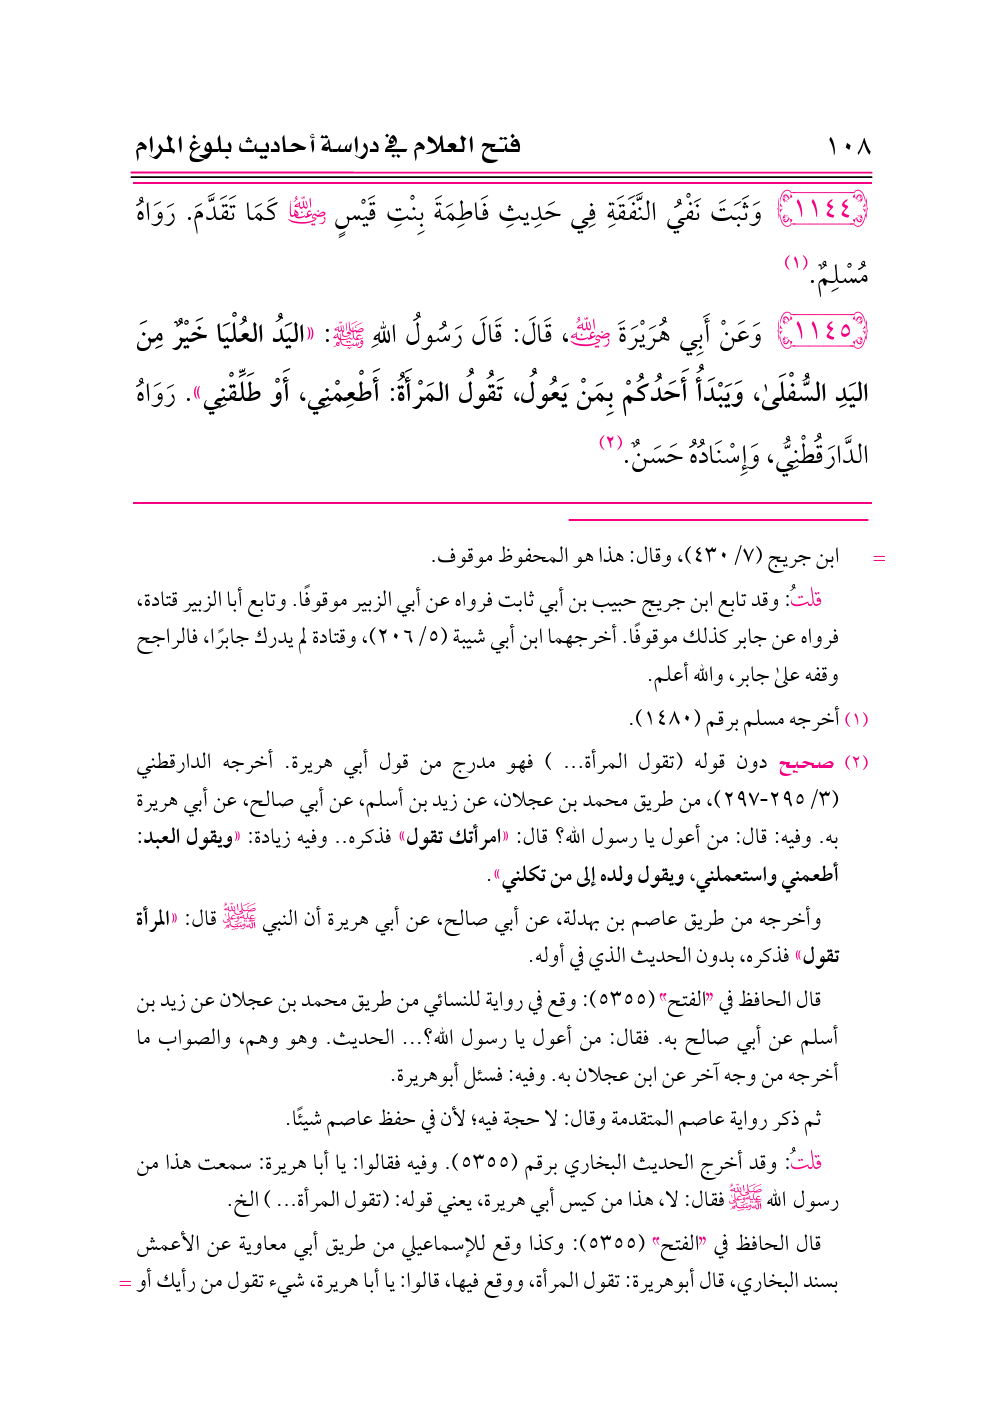 ١٠٨ فتح العلام في دراسة أحاديث بلوغ المرام
١١٤٤ وَثَبَتَ نَفْيُ النَّفَقَةِ فِي حَدِيثِ فَاطِمَةَ بِنْتِ قَيْسٍ رضي الله عنها كَمَا تَقَدَّمَ. رَوَاهُ
مُسْلِمٌ. (١)
١١٤٥ وَعَنْ أَبِي هُرَيْرَةَ رضي الله عنه، قَالَ: قَالَ رَسُولُ اللهِ ﷺ: «اليَدُ العُلْيَا خَيْرٌ مِنَ
اليَدِ السُّفْلَىٰ، وَيَبْدَأُ أَحَدُكُمْ بِمَنْ يَعُولُ، تَقُولُ المَرْأَةُ: أَطْعِمْنِي، أَوْ طَلِّقْنِي». رَوَاهُ
الدَّارَقُطْنِيُّ، وَإِسْنَادُهُ حَسَنٌ. (٢)
= ابن جريج (٧/ ٤٣٠)، وقال: هذا هو المحفوظ موقوف.
قلتُ: وقد تابع ابن جريج حبيب بن أبي ثابت فرواه عن أبي الزبير موقوفًا. وتابع أبا الزبير قتادة،
فرواه عن جابر كذلك موقوفًا. أخرجهما ابن أبي شيبة (٥/ ٢٠٦)، وقتادة لم يدرك جابرًا، فالراجح
وقفه علىٰ جابر، والله أعلم.
(١) أخرجه مسلم برقم (١٤٨٠).
(٢) صحيح دون قوله (تقول المرأة... ) فهو مدرج من قول أبي هريرة. أخرجه الدارقطني
(٣/ ٢٩٥-٢٩٧)، من طريق محمد بن عجلان، عن زيد بن أسلم، عن أبي صالح، عن أبي هريرة
به. وفيه: قال: من أعول يا رسول الله؟ قال: «امرأتك تقول» فذكره.. وفيه زيادة: «ويقول العبد:
أطعمني واستعملني، ويقول ولده إلى من تكلني».
وأخرجه من طريق عاصم بن بهدلة، عن أبي صالح، عن أبي هريرة أن النبي ﷺ قال: «المرأة
تقول» فذكره، بدون الحديث الذي في أوله.
قال الحافظ في "الفتح" (٥٣٥٥): وقع في رواية للنسائي من طريق محمد بن عجلان عن زيد بن
أسلم عن أبي صالح به. فقال: من أعول يا رسول الله؟... الحديث. وهو وهم، والصواب ما
أخرجه من وجه آخر عن ابن عجلان به. وفيه: فسئل أبوهريرة.
ثم ذكر رواية عاصم المتقدمة وقال: لا حجة فيه؛ لأن في حفظ عاصم شيئًا.
قلتُ: وقد أخرج الحديث البخاري برقم (٥٣٥٥). وفيه فقالوا: يا أبا هريرة: سمعت هذا من
رسول الله ﷺ فقال: لا، هذا من كيس أبي هريرة، يعني قوله: (تقول المرأة... ) الخ.
قال الحافظ في "الفتح" (٥٣٥٥): وكذا وقع للإسماعيلي من طريق أبي معاوية عن الأعمش
بسند البخاري، قال أبوهريرة: تقول المرأة، ووقع فيها، قالوا: يا أبا هريرة، شيء تقول من رأيك أو =